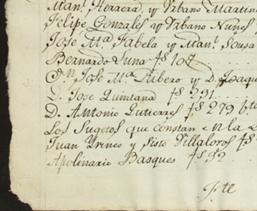 Man.l Herrera, y Urbano Martin
Felipe Gonzales y Urbano Nuñes
José M.a Fabela y Man.l Sousa
Bernardo Luna f$ 107
José M.a Ribero y D. Joaqu
D. José Quintana f$ 291
D. Antonio Gutierres f$ 279 6
Los Sugetos que constan en la
Juan Yrineo y Sisto Villaloros f$
Apolenario Basques f$ 32